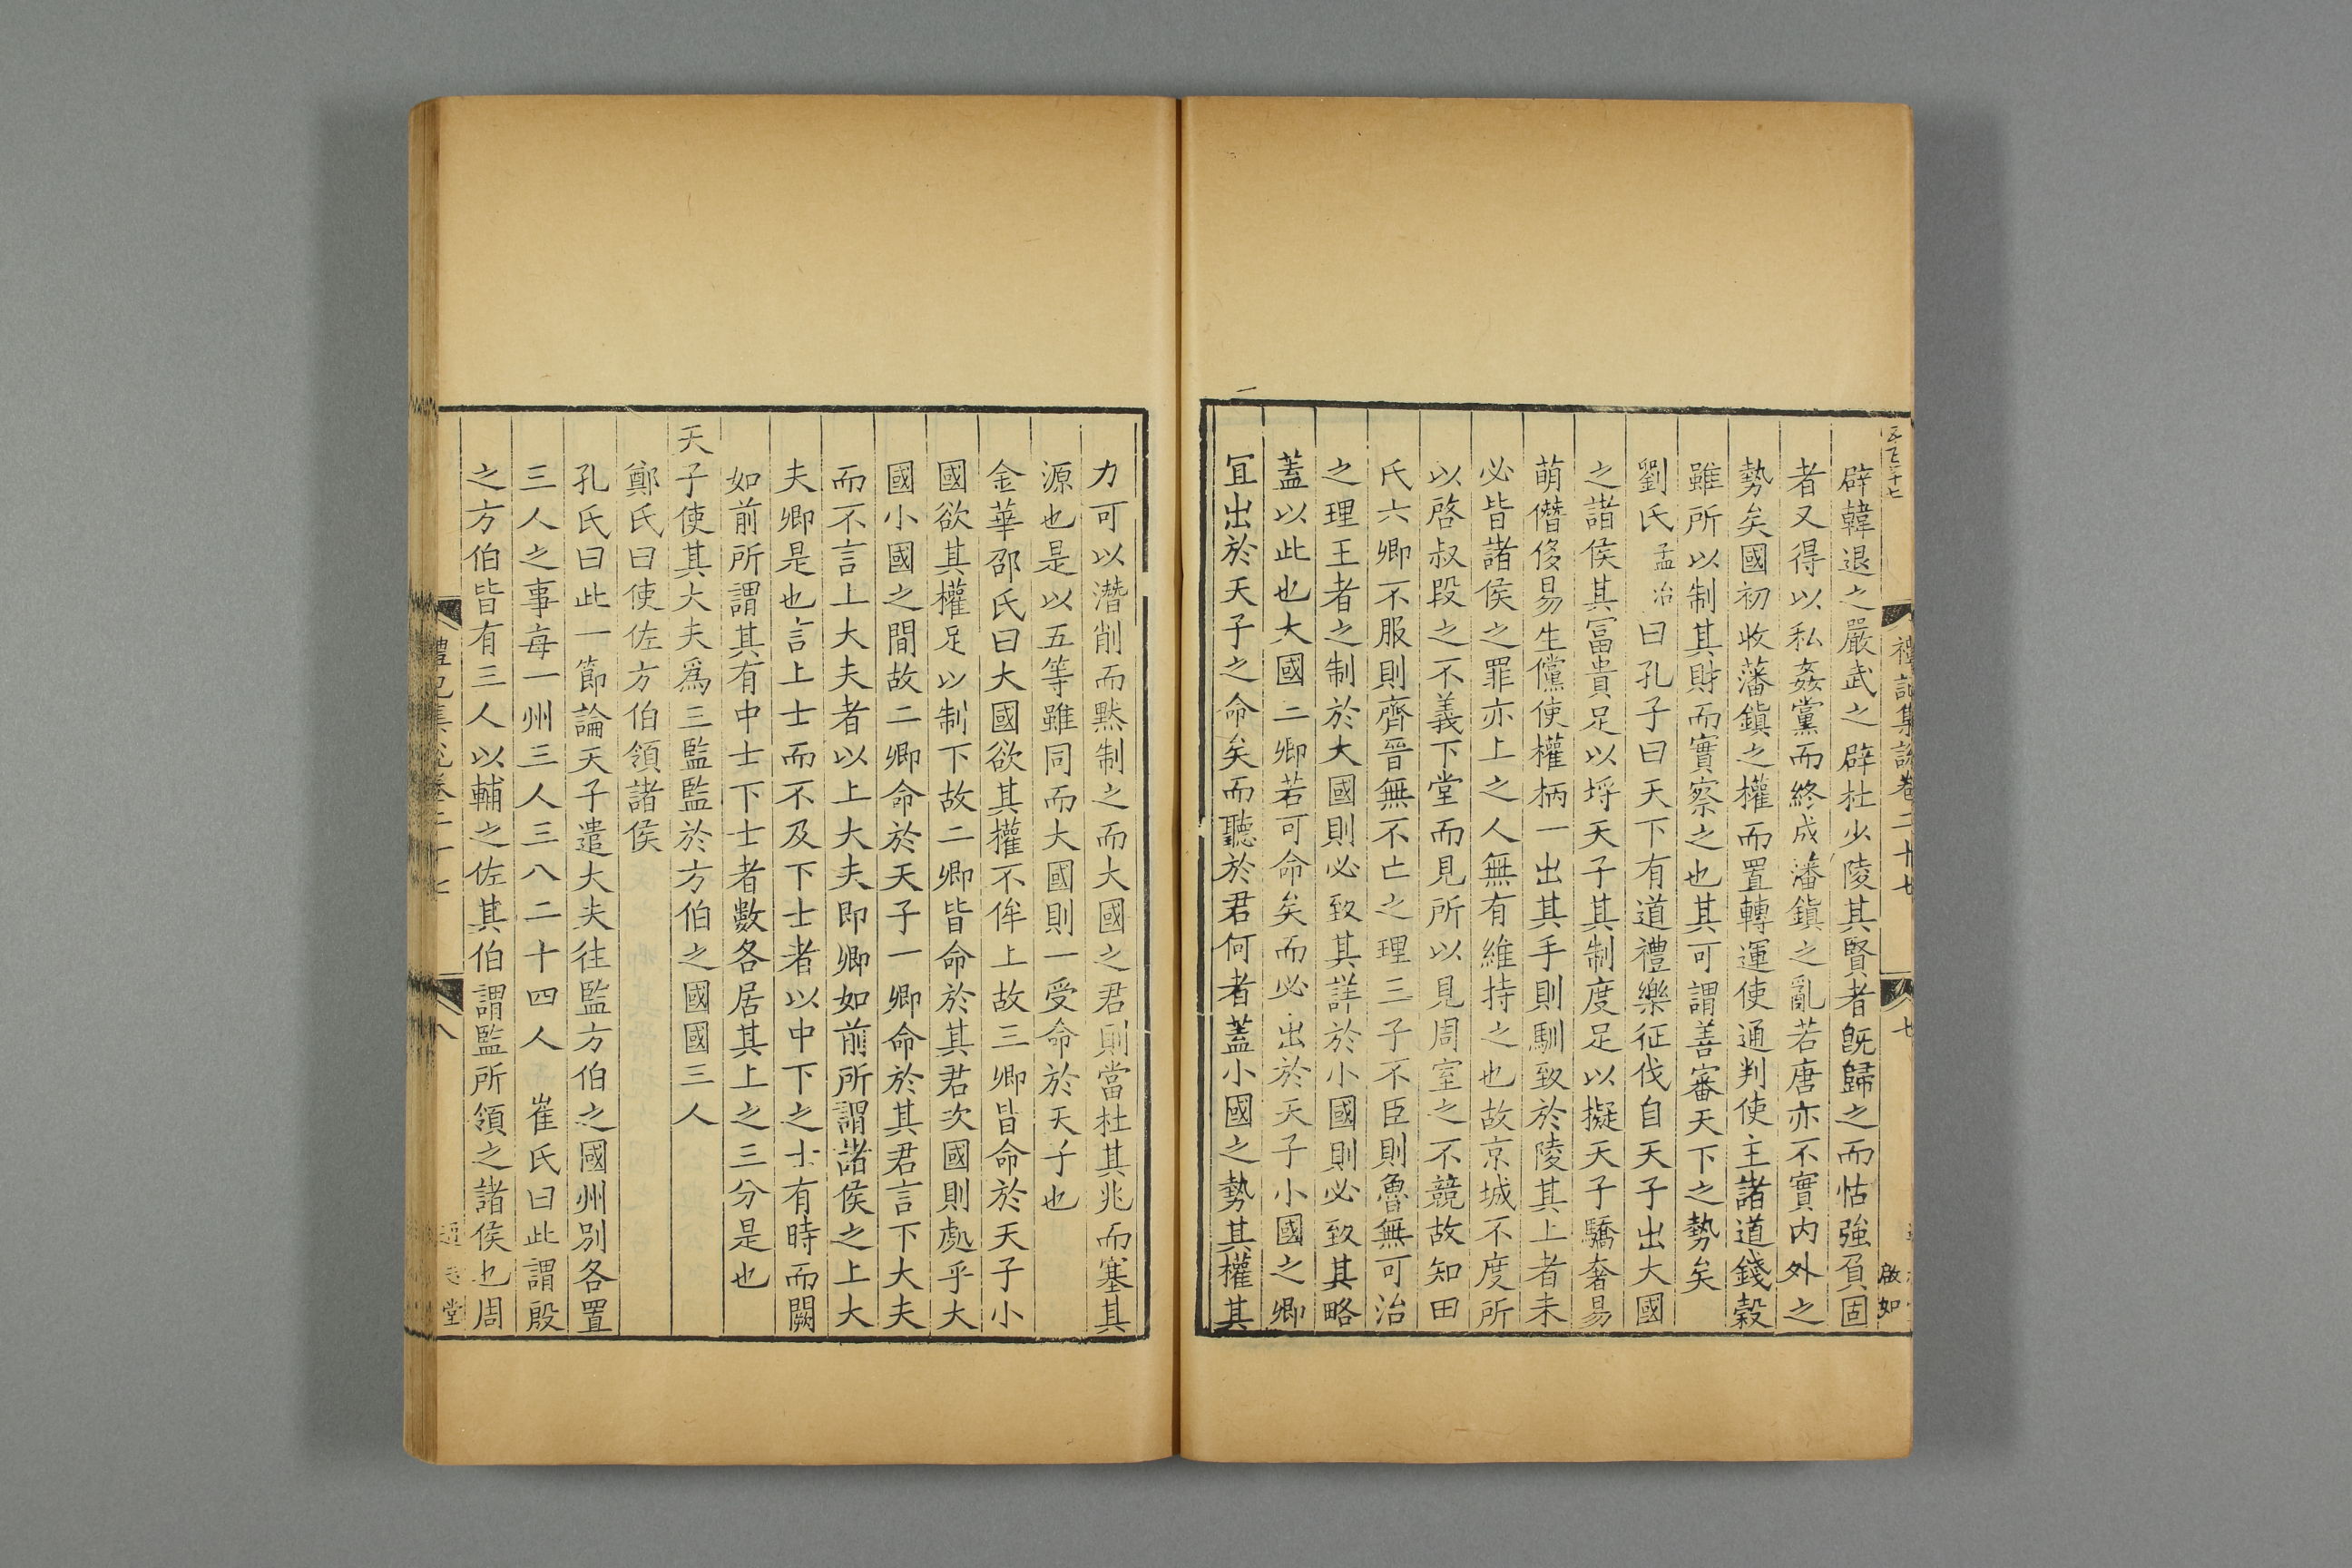 禮記集說卷二十七
七
啟如
辟韓退之嚴武之辟杜少陵其賢者旣歸之而怙強負固
者又得以私姦黨而終成潘鎮之亂若唐亦不實内外之
勢矣國初收藩鎮之權而置轉運使通判使主諸道錢穀
雖所以制其財而實察之也其可謂善審天下之勢矣
劉氏孟冶曰孔子曰天下有道禮樂征伐自天子出大國
之諸侯其冨貴足以埒天子其制度足以擬天子驕奢易
萌僭侈易生儻使權柄一出其手則馴致於陵其上者未
必皆諸侯之罪亦上之人無有維持之也故京城不度所
以啓叔段之不義下堂而見所以見周室之不競故知田
氏六卿不服則齊晉無不亡之理三子不臣則魯無可治
之理王者之制於大國則必致其詳於小國則必致其略
蓋以此也大國二卿若可命矣而必出於天子小國之卿
冝出於天子之命矣而聽於君何者蓋小國之勢其權其
力可以潛削而黙制之而大國之君則當杜其兆而塞其
源也是以五等雖同而大國則一受命於天子也
金華邵氏曰大國欲其權不侔上故三卿皆命於天子小
國欲其權足以制下故二卿皆命於其君次國則處乎大
國小國之間故二卿命於天子一卿命於其君言下大夫
而不言上大夫者以上大夫即卿如前所謂諸侯之上大
夫卿是也言上士而不及下士者以中下之士有時而闕
如前所謂其有中士下士者數各居其上之三分是也
天子使其大夫爲三監監於方伯之國國三人
鄭氏曰使佐方伯領諸侯
孔氏曰此一節論天子遣大夫往監方伯之國州別各置
三人之事每一州三人三八二十四人　崔氏曰此謂殷
之方伯皆有三人以輔之佐其伯謂監所領之諸侯也周
禮記集說卷二十七
八
通志堂